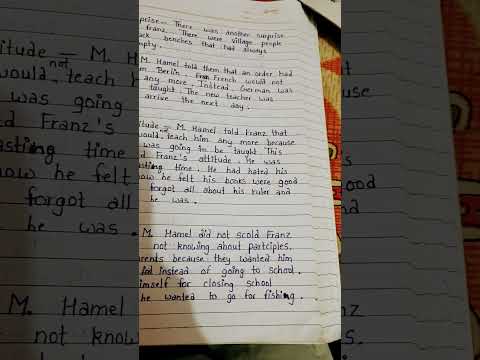 prise – There was another surprise
franz. There were village people
ack benches that had always
mpty.
M. Hamel told them that an order had
m Berlin. French would not
any more. Instead German was
taught. The new teacher was
arrive the next day.
itude – M. Hamel told Franz that
would not teach him any more because
was going to be taught This
d Franz's attitude. He was
asting time. He had hated his
now he felt his books were good
forgot all about his ruler and
he was.
M. Hamel did not scold Franz
not knowing about partciples.
rents because they wanted him
instead of going to school.
imself for closing school
he wanted to go for fishing.